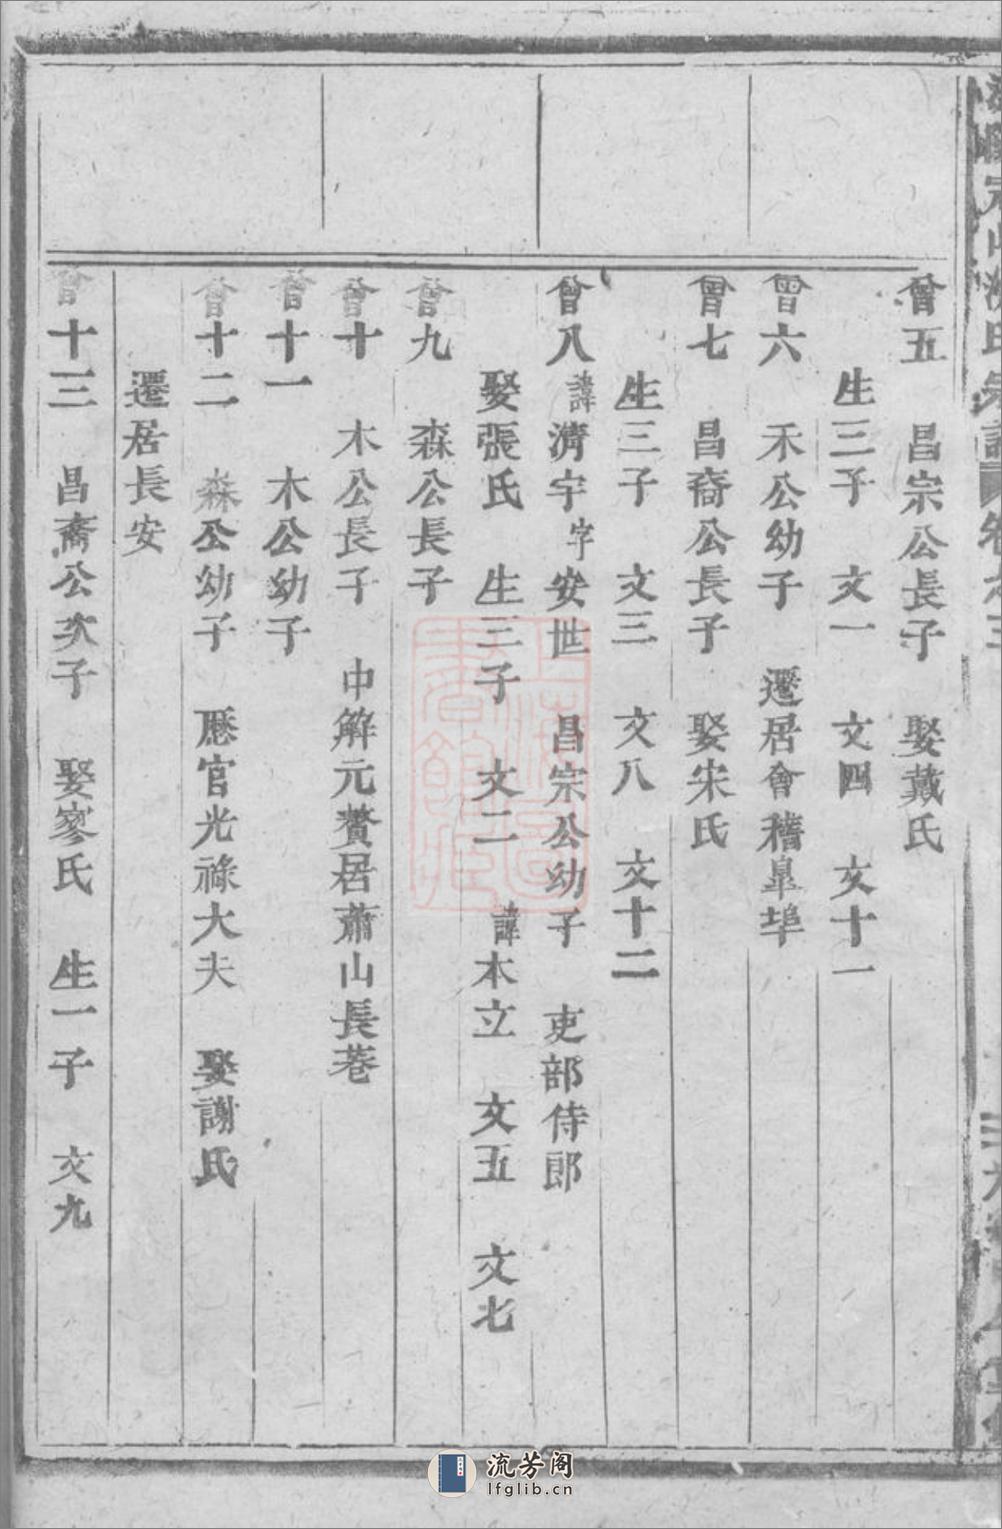 曾五 昌宗公長子 娶戴氏
生三子 文一 文四 文十一
曾六 禾公幼子 遷居會稽皐埠
曾七 昌裔公長子 娶宋氏
生三子 文三 文八 文十二
曾八 諱濟宇字安世 昌宗公幼子 吏部侍郎
娶張氏 生三子 文二 諱本立 文五 文七
曾九 森公長子
曾十 木公長子 中解元贅居蕭山長巷
曾十一 木公幼子
曾十二 森公幼子 歷官光祿大夫 娶謝氏
遷居長安
曾十三 昌裔公次子 娶寥氏 生一子 文九
上海圖書館藏
流芳阁
lfglib.cn